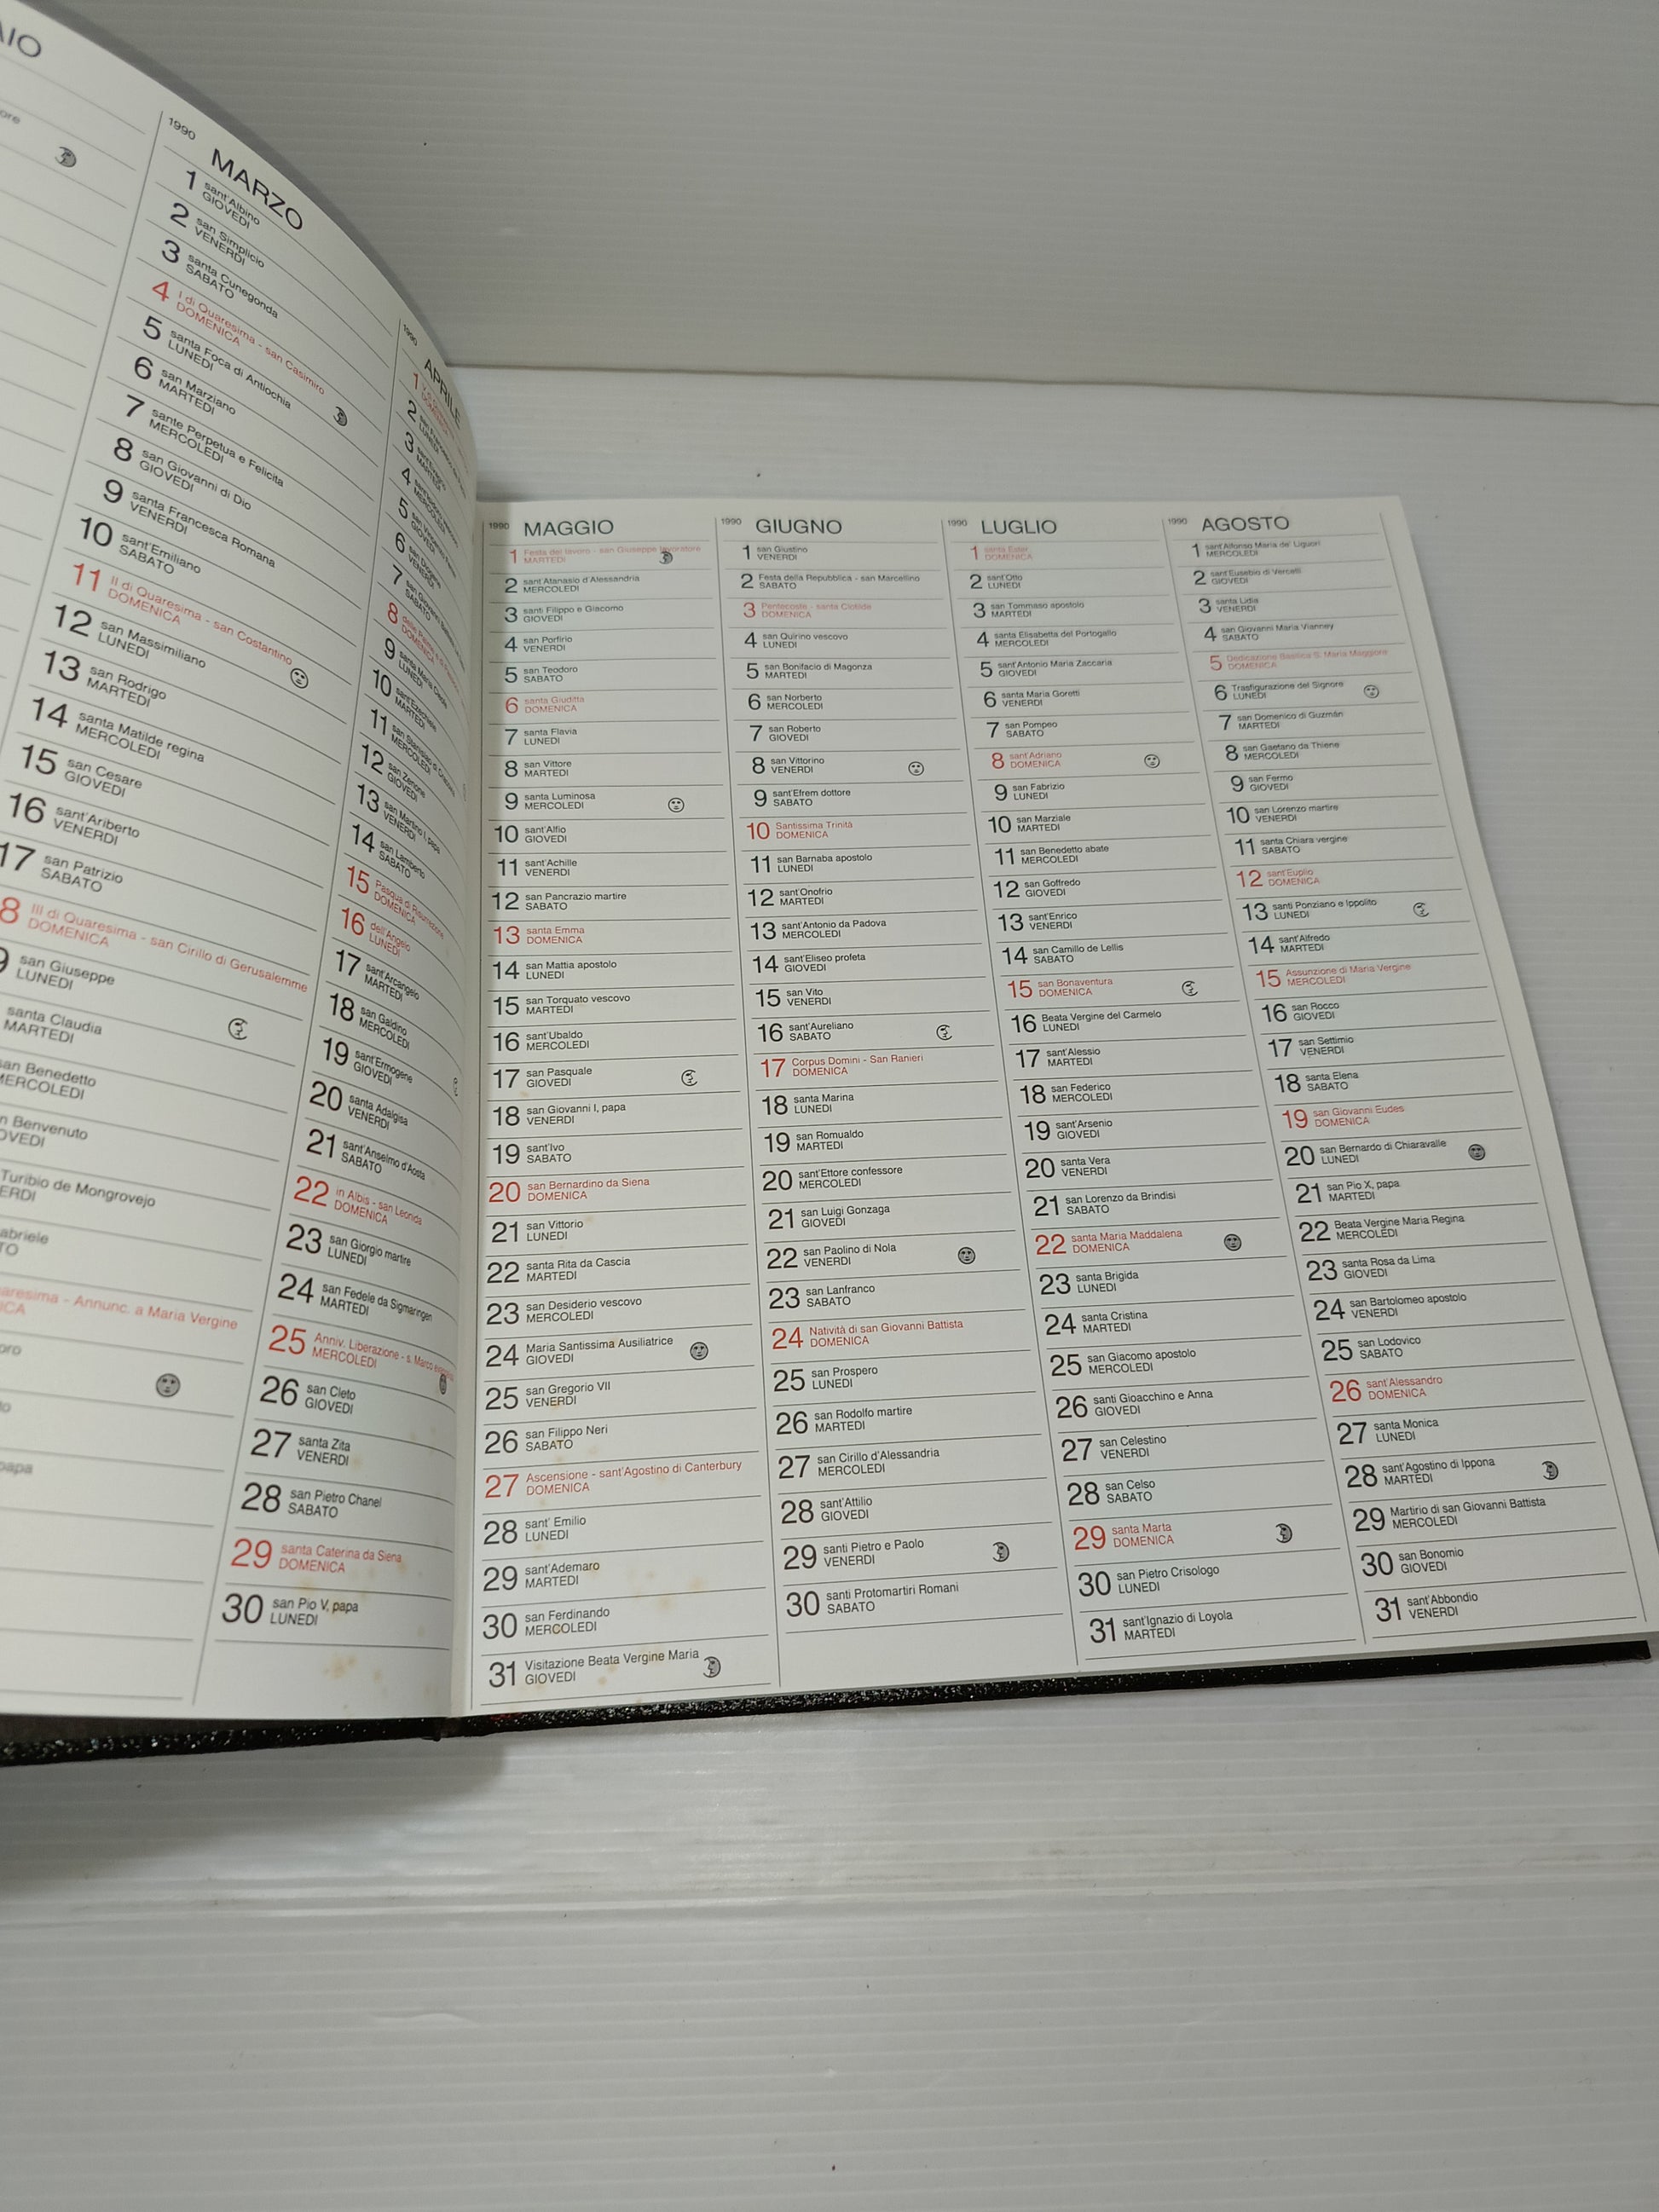 AIO
ore
abriele
TO
papa
1990
MARZO
1 sant'Albino
GIOVEDI
2 san Simplicio
VENERDI
3 santa Cunegonda
SABATO
4 I di Quaresima - san Casimiro
DOMENICA
5 santa Foca di Antiochia
LUNEDI
6 san Marziano
MARTEDI
7 sante Perpetua e Felicita
MERCOLEDI
8 san Giovanni di Dio
GIOVEDI
9 santa Francesca Romana
VENERDI
10 sant'Emiliano
SABATO
11 II di Quaresima - san Costantino
DOMENICA
12 san Massimiliano
LUNEDI
13 san Rodrigo
MARTEDI
14 santa Matilde regina
MERCOLEDI
15 san Cesare
GIOVEDI
16 sant'Ariberto
VENERDI
17 san Patrizio
SABATO
8 III di Quaresima - san Cirillo di Gerusalemme
DOMENICA
9 san Giuseppe
LUNEDI
santa Claudia
MARTEDI
san Benedetto
MERCOLEDI
n Benvenuto
OVEDI
Turibio de Mongrovejo
ERDI
aresima - Annunc. a Maria Vergine
ICA
1990
APRILE
1
DOMENICA
2
LUNEDI
3
MARTEDI
4
MERCOLEDI
5
GIOVEDI
6
VENERDI
7
SABATO
8
DOMENICA
9
LUNEDI
10 sant'Ezechiele
MARTEDI
11
MERCOLEDI
12 san Zenone
GIOVEDI
13 san Martino I, papa
VENERDI
14 san Lamberto
SABATO
15 Pasqua di Risurrezione
DOMENICA
16 dell'Angelo
LUNEDI
17 sant'Arcangelo
MARTEDI
18 san Galdino
MERCOLEDI
19 sant'Ermogene
GIOVEDI
20 santa Adalgisa
VENERDI
21 sant'Anselmo d'Aosta
SABATO
22 in Albis - san Leonida
DOMENICA
23 san Giorgio martire
LUNEDI
24 san Fedele da Sigmaringen
MARTEDI
25 Anniv. Liberazione - s. Marco
MERCOLEDI
26 san Cleto
GIOVEDI
27 santa Zita
VENERDI
28 san Pietro Chanel
SABATO
29 santa Caterina da Siena
DOMENICA
30 san Pio V, papa
LUNEDI
1990 MAGGIO
1 Festa del lavoro - san Giuseppe lavoratore
MARTEDI
2 sant'Atanasio d'Alessandria
MERCOLEDI
3 santi Filippo e Giacomo
GIOVEDI
4 san Porfirio
VENERDI
5 san Teodoro
SABATO
6 santa Giuditta
DOMENICA
7 santa Flavia
LUNEDI
8 san Vittore
MARTEDI
9 santa Luminosa
MERCOLEDI
10 sant'Alfio
GIOVEDI
11 sant'Achille
VENERDI
12 san Pancrazio martire
SABATO
13 santa Emma
DOMENICA
14 san Mattia apostolo
LUNEDI
15 san Torquato vescovo
MARTEDI
16 sant'Ubaldo
MERCOLEDI
17 san Pasquale
GIOVEDI
18 san Giovanni I, papa
VENERDI
19 sant'Ivo
SABATO
20 san Bernardino da Siena
DOMENICA
21 san Vittorio
LUNEDI
22 santa Rita da Cascia
MARTEDI
23 san Desiderio vescovo
MERCOLEDI
24 Maria Santissima Ausiliatrice
GIOVEDI
25 san Gregorio VII
VENERDI
26 san Filippo Neri
SABATO
27 Ascensione - sant'Agostino di Canterbury
DOMENICA
28 sant' Emilio
LUNEDI
29 sant'Ademaro
MARTEDI
30 san Ferdinando
MERCOLEDI
31 Visitazione Beata Vergine Maria
GIOVEDI
1990 GIUGNO
1 san Giustino
VENERDI
2 Festa della Repubblica - san Marcellino
SABATO
3 Pentecoste - santa Clotilde
DOMENICA
4 san Quirino vescovo
LUNEDI
5 san Bonifacio di Magonza
MARTEDI
6 san Norberto
MERCOLEDI
7 san Roberto
GIOVEDI
8 san Vittorino
VENERDI
9 sant'Efrem dottore
SABATO
10 Santissima Trinità
DOMENICA
11 san Barnaba apostolo
LUNEDI
12 sant'Onofrio
MARTEDI
13 sant'Antonio da Padova
MERCOLEDI
14 sant'Eliseo profeta
GIOVEDI
15 san Vito
VENERDI
16 sant'Aureliano
SABATO
17 Corpus Domini - San Ranieri
DOMENICA
18 santa Marina
LUNEDI
19 san Romualdo
MARTEDI
20 sant'Ettore confessore
MERCOLEDI
21 san Luigi Gonzaga
GIOVEDI
22 san Paolino di Nola
VENERDI
23 san Lanfranco
SABATO
24 Natività di san Giovanni Battista
DOMENICA
25 san Prospero
LUNEDI
26 san Rodolfo martire
MARTEDI
27 san Cirillo d'Alessandria
MERCOLEDI
28 sant'Attilio
GIOVEDI
29 santi Pietro e Paolo
VENERDI
30 santi Protomartiri Romani
SABATO
1990 LUGLIO
1 santa Ester
DOMENICA
2 sant'Otto
LUNEDI
3 san Tommaso apostolo
MARTEDI
4 santa Elisabetta del Portogallo
MERCOLEDI
5 sant'Antonio Maria Zaccaria
GIOVEDI
6 santa Maria Goretti
VENERDI
7 san Pompeo
SABATO
8 sant'Adriano
DOMENICA
9 san Fabrizio
LUNEDI
10 san Marziale
MARTEDI
11 san Benedetto abate
MERCOLEDI
12 san Goffredo
GIOVEDI
13 sant'Enrico
VENERDI
14 san Camillo de Lellis
SABATO
15 san Bonaventura
DOMENICA
16 Beata Vergine del Carmelo
LUNEDI
17 sant'Alessio
MARTEDI
18 san Federico
MERCOLEDI
19 sant'Arsenio
GIOVEDI
20 santa Vera
VENERDI
21 san Lorenzo da Brindisi
SABATO
22 santa Maria Maddalena
DOMENICA
23 santa Brigida
LUNEDI
24 santa Cristina
MARTEDI
25 san Giacomo apostolo
MERCOLEDI
26 santi Gioacchino e Anna
GIOVEDI
27 san Celestino
VENERDI
28 san Celso
SABATO
29 santa Marta
DOMENICA
30 san Pietro Crisologo
LUNEDI
31 sant'Ignazio di Loyola
MARTEDI
1990 AGOSTO
1 sant'Alfonso Maria de' Liguori
MERCOLEDI
2 sant'Eusebio di Vercelli
GIOVEDI
3 santa Lidia
VENERDI
4 san Giovanni Maria Vianney
SABATO
5 Dedicazione Basilica S. Maria Maggiore
DOMENICA
6 Trasfigurazione del Signore
LUNEDI
7 san Domenico di Guzmán
MARTEDI
8 san Gaetano da Thiene
MERCOLEDI
9 san Fermo
GIOVEDI
10 san Lorenzo martire
VENERDI
11 santa Chiara vergine
SABATO
12 sant'Euplio
DOMENICA
13 santi Ponziano e Ippolito
LUNEDI
14 sant'Alfredo
MARTEDI
15 Assunzione di Maria Vergine
MERCOLEDI
16 san Rocco
GIOVEDI
17 san Settimio
VENERDI
18 santa Elena
SABATO
19 san Giovanni Eudes
DOMENICA
20 san Bernardo di Chiaravalle
LUNEDI
21 san Pio X, papa
MARTEDI
22 Beata Vergine Maria Regina
MERCOLEDI
23 santa Rosa da Lima
GIOVEDI
24 san Bartolomeo apostolo
VENERDI
25 san Lodovico
SABATO
26 sant'Alessandro
DOMENICA
27 santa Monica
LUNEDI
28 sant'Agostino di Ippona
MARTEDI
29 Martirio di san Giovanni Battista
MERCOLEDI
30 san Bonomio
GIOVEDI
31 sant'Abbondio
VENERDI